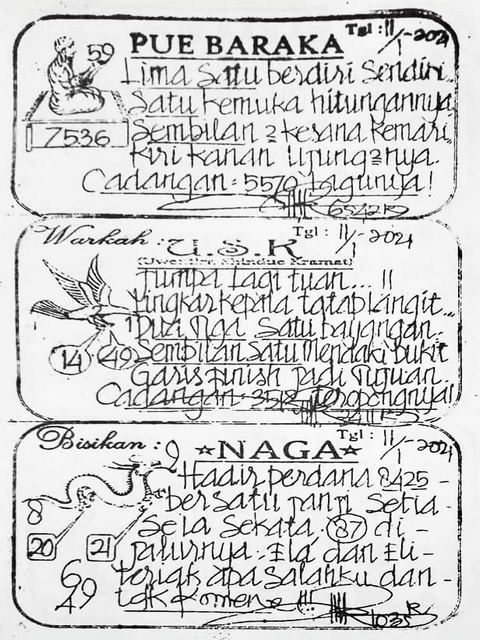 PUE BARAKA Tgl : 11/1-2021
59
Lima Satu berdiri Sendiri..
Satu kemuka hitungannya
7536
Sembilan 2 kesana kemari
Kiri kanan Ujung2nya.
Cadangan : 5570 Lagunya!
6542
Warkah : U.S.K Tgl : 11/1-2021
Jumpa Lagi tuan... !!
Lingkar kepala tatap langit...
Dua Tiga Satu bayangan.
14 49
Sembilan Satu Mendaki bukit
Garis finish jadi Tujuan..
Cadangan : 3512 Teropongnya!
Bisikan : NAGA Tgl : 11/1-2021
9
Hadir perdana 8425 -
8
bersatu janji Setia
Sela Sekata, 87 di -
20 21
jalurnya. Ela dan Eli -
6
teriak apa Salahku dan -
49
tak komen2 !!!
1035